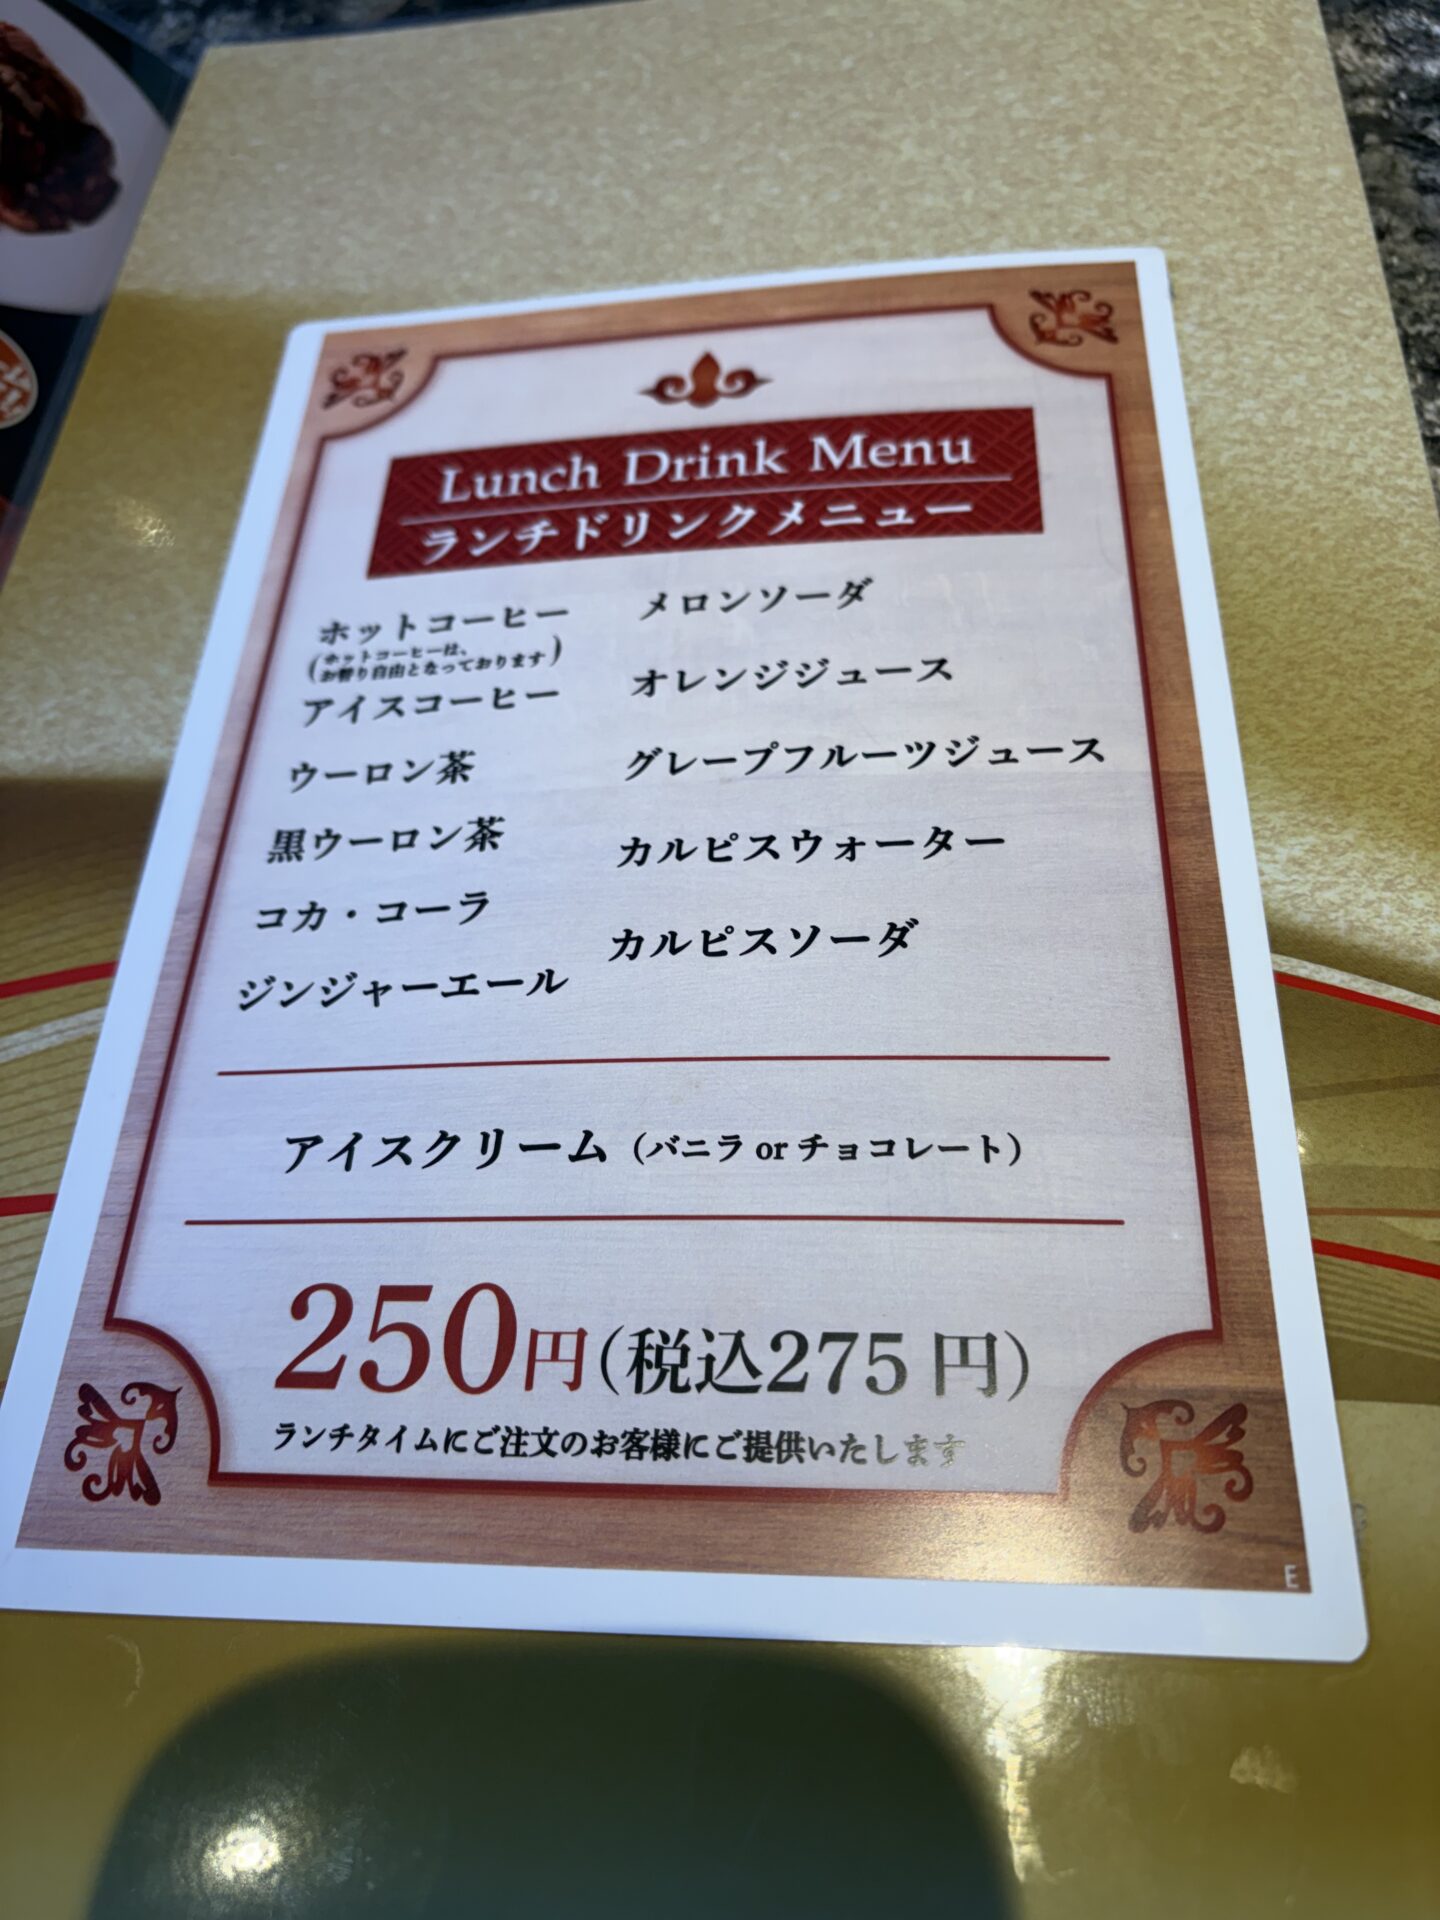 Lunch Drink Menu
ランチドリンクメニュー
ホットコーヒー
(ホットコーヒーは、
お替り自由となっております)
アイスコーヒー
ウーロン茶
黒ウーロン茶
コカ・コーラ
ジンジャーエール
メロンソーダ
オレンジジュース
グレープフルーツジュース
カルピスウォーター
カルピスソーダ
アイスクリーム（バニラ or チョコレート）
250円(税込275円)
ランチタイムにご注文のお客様にご提供いたします
E